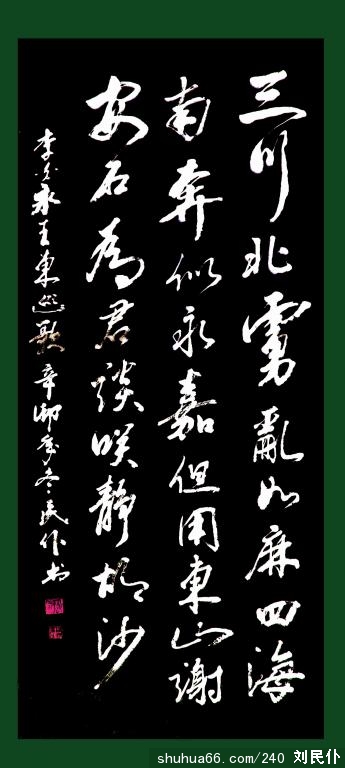 三川北虜亂如麻四海
南奔似永嘉但用東山謝
安石為君談咲靜胡沙
李白永王東巡歌辛卯年冬民仆书
shuhua66.com/240 刘民仆